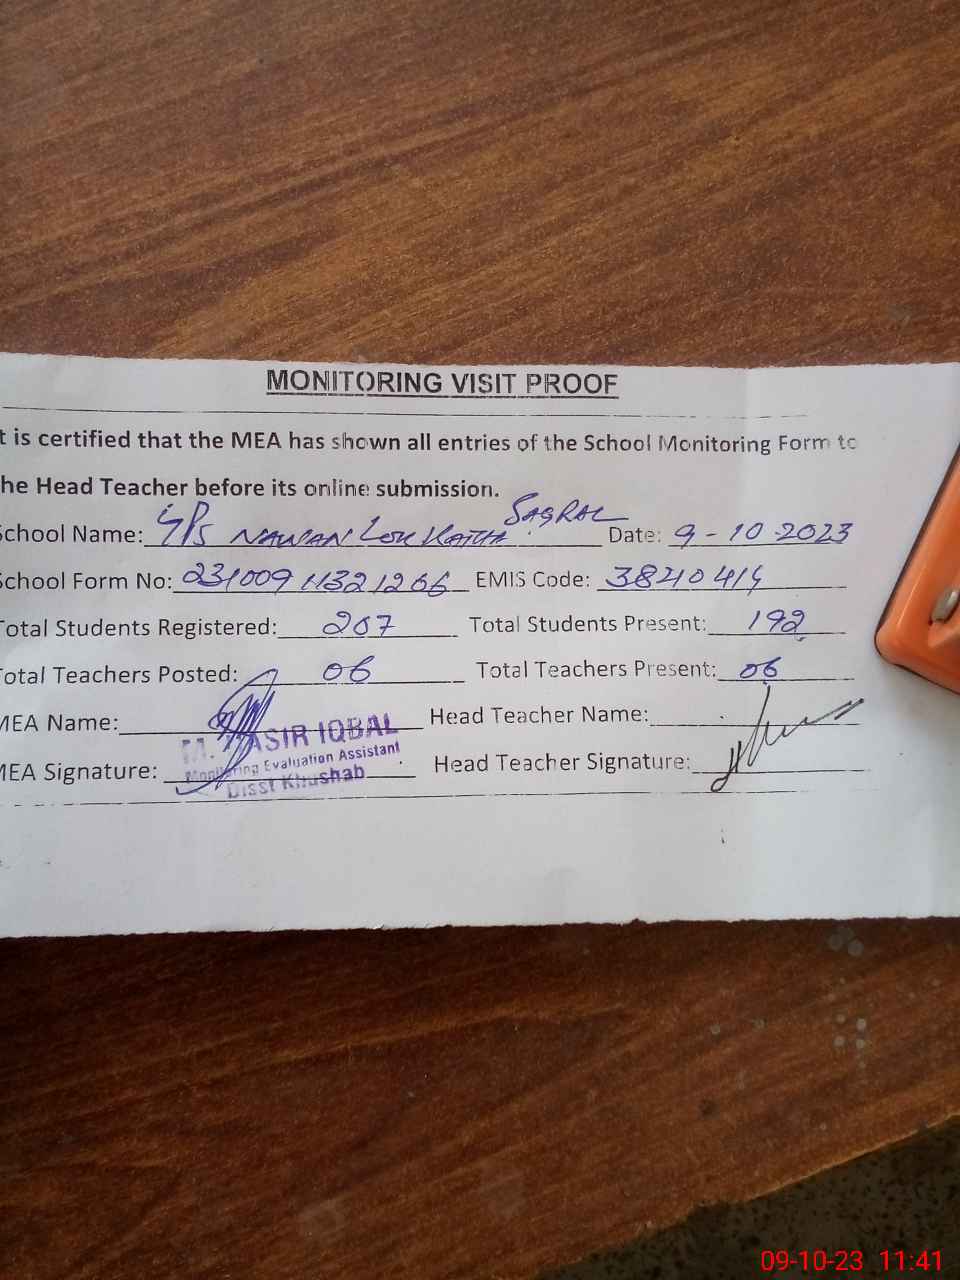 MONITORING VISIT PROOF
t is certified that the MEA has shown all entries of the School Monitoring Form to
he Head Teacher before its online submission.
School Name: GPS NAWAN LOK KATHA SAGRAL Date: 9-10-2023
School Form No: 231009 11321206 EMIS Code: 38210414
Total Students Registered: 207 Total Students Present: 192
Total Teachers Posted: 06 Total Teachers Present: 06
MEA Name: Head Teacher Name:
M. NASIR IQBAL
Monitoring Evaluation Assistant
MEA Signature: Head Teacher Signature:
Disst Khushab
09-10-23 11:41